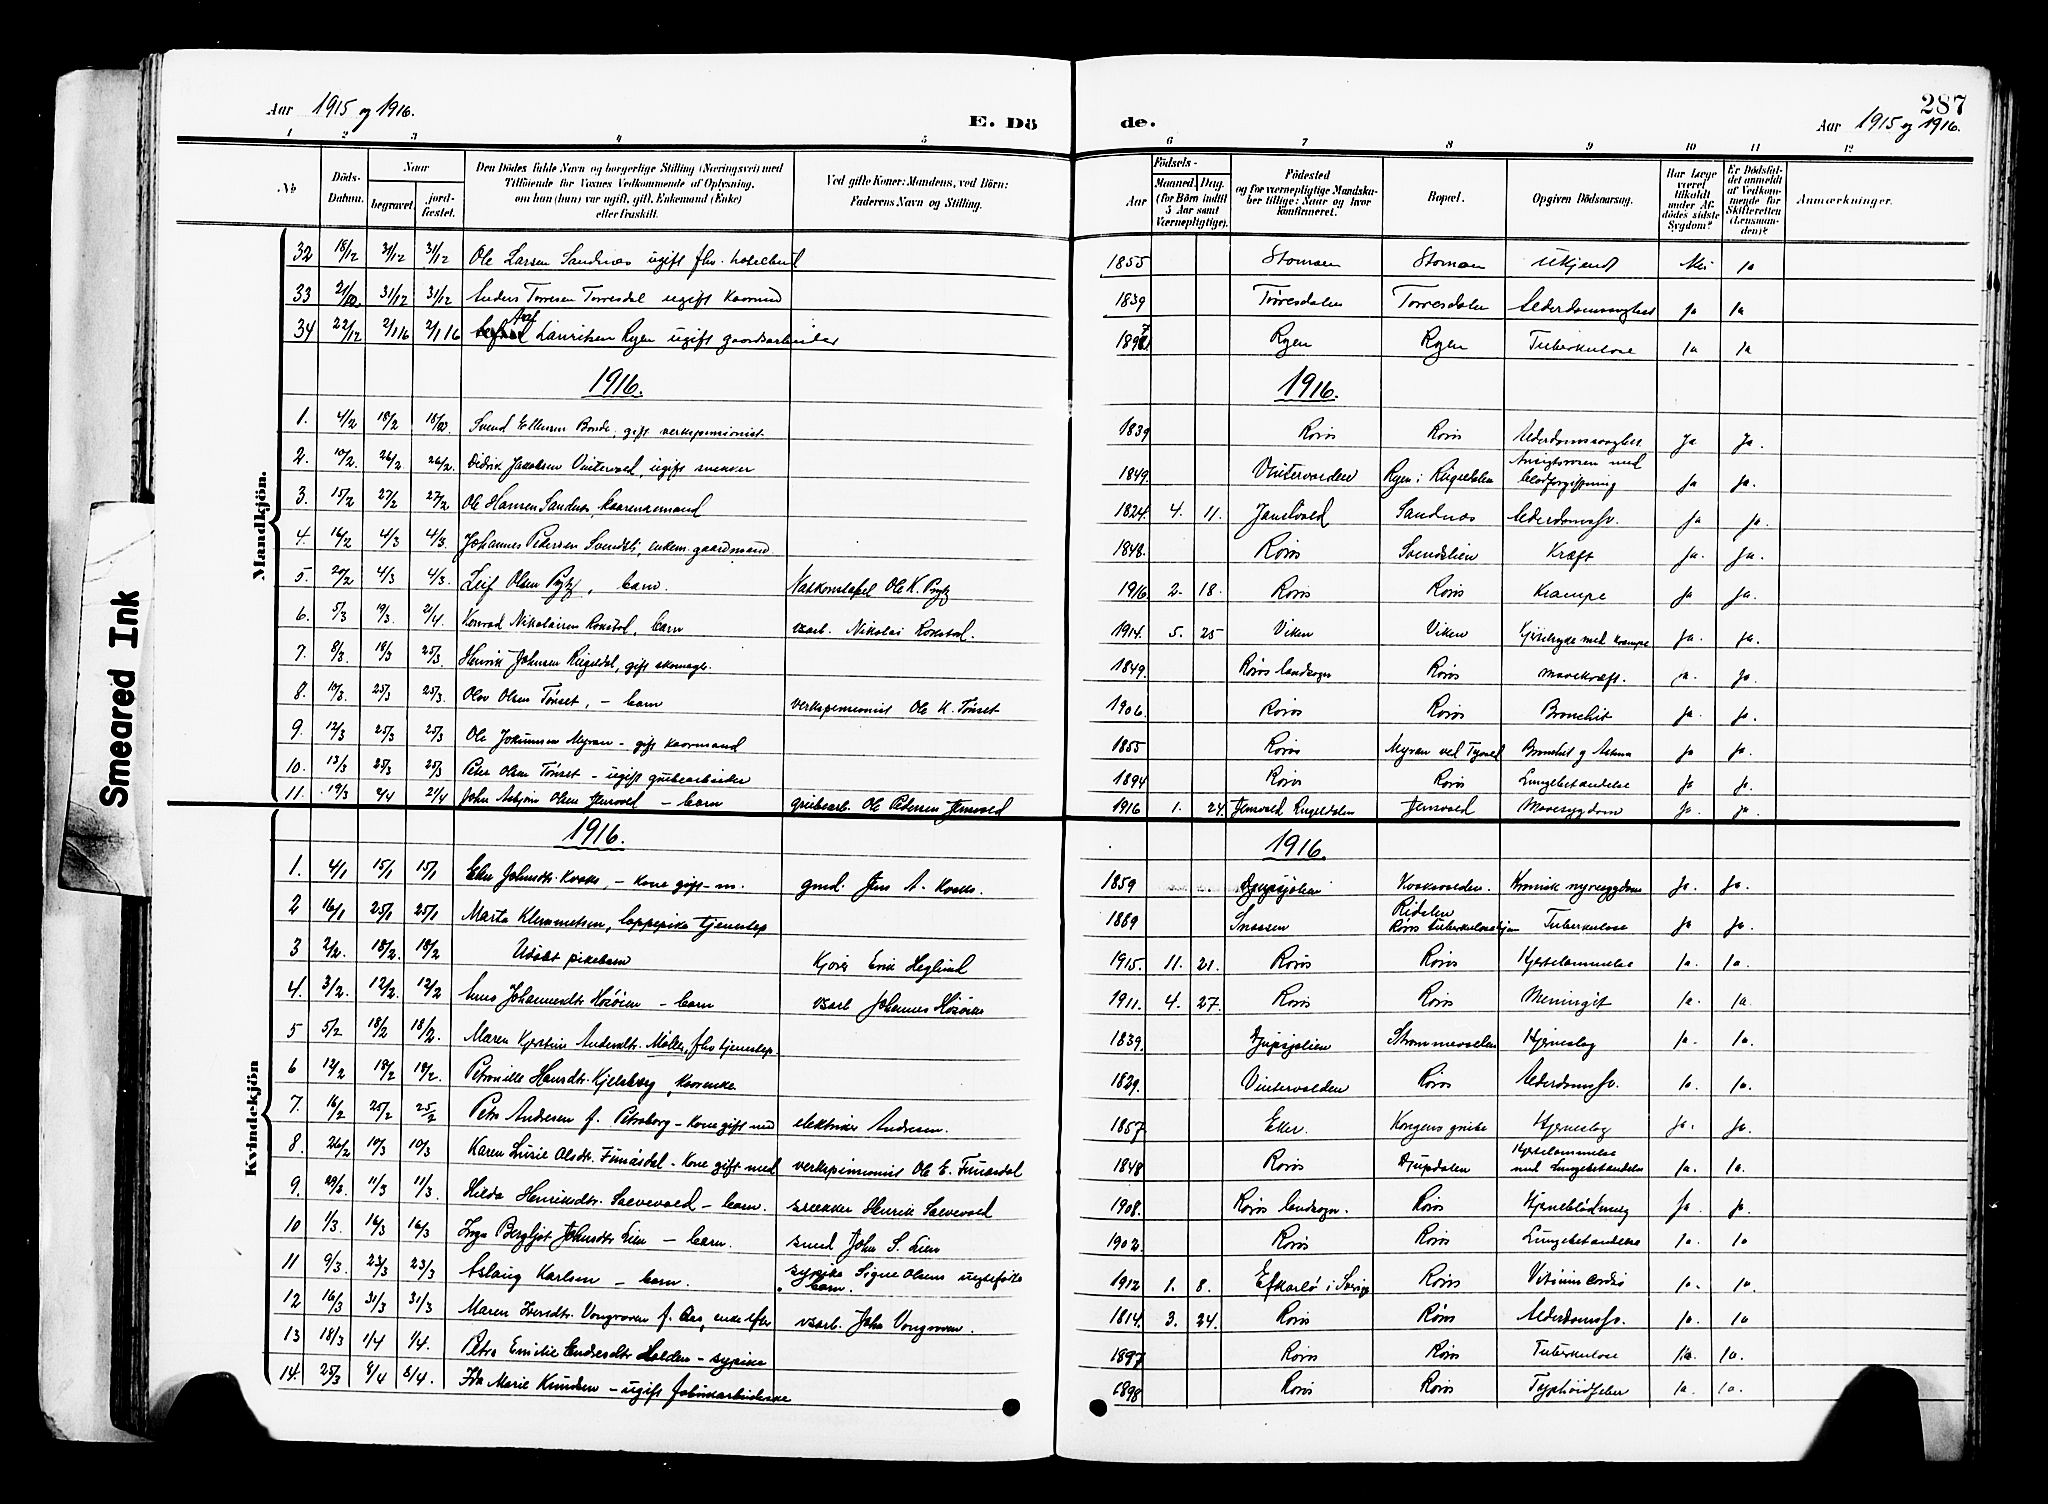 Aar 1915 og 1916.
E. Dö
de.
287
Aar 1915 og 1916.
1 2 3 4 5 6 7 8 9 10 11 12
No
Döds-Datum.
Naar
begravet.
jord-fæstet.
Den Dödes fulde Navn og borgerlige Stilling (Næringsvei) med
Tilföiende for Voxnes Vedkommende af Oplysning,
om han (hun) var ugift, gift, Enkemand (Enke)
eller fraskilt.
Ved gifte Koner: Mandens, ved Börn:
Faderens Navn og Stilling.
Födsels-
Aar
Maaned. Dag.
(for Börn indtil
5 Aar samt
Værnepligtige).
Födested
og for værnepligtige Mandska-
ber tillige: Naar og hvor
konfirmeret.
Bopæl.
Opgiven Dödsaarsag.
Har Læge
været
tilkaldt
under Af-
dödes sidste
Sygdom?
Er Dödsfal-
det anmeldt
af Vedkom-
mende for
Skifteretten
(Lensman-
den)?
Anmærkninger.
Mandkjön.
32 18/12 31/12 31/12 Ole Larsen Sandnæs ugift fhv. hotelbud 1855 Stomoen Stomoen Ukjendt Nei Ja
33 31/12 31/12 Anders Torresen Torresdal ugift kaarmand 1839 Torresdalen Torresdalen Alderdomssvaghed Ja Ja
34 22/12 2/1 16 2/1 16 Lauritsen Ryen ugift gaardsarbeider Ryen Ryen Tuberkulose Ja Ja
1916. 1916.
1. 4/2 18/2 Svend Ellensen Borde, gift verkspensionist 1839 Røros Røros Alderdomssvaghed Ja Ja.
2. 19/2 26/2 26/2 Didrik Jakobsen Vintervold, ugift snekker 1849. Vintervolden Ryen i Rugeldalen Ansigtsrosen med blodforgiftning Ja Ja.
3. 15/2 27/2 27/2 Ole Hansen Sandnæs, kaarenkemand 1824. 4. 11. Jensvold Sandnæs Alderdomssv. Ja Ja.
4. 16/2 4/3 4/3. Johannes Pedersen Svendsli, enkem. gaardmand 1848. Røros Svendslien Kræft Ja. Ja.
5. 20/2 4/3 4/3. Leif Olsen Prytz, barn. Natkonstabel Ole K. Prytz 1916 2. 18. Røros Røros Krampe Ja Ja.
6. 5/3 19/3. 2/4 Konrad Nikolaisen Rokstad, barn vsarb. Nikolai Rokstad. 1914. 5. 25 Viken Viken Kighoste med krampe Ja. Ja.
7. 8/3. 18/3 25/3. Henrik Johnsen Rugeldal, gift skomager. 1849. Røros landsogn Røros Mavekræft. Ja. Ja.
8. 10/3. 25/3 25/3. Olav Olsen Tønset, – barn verkspensionist Ole K. Tønset 1906. Røros Røros Bronchit Ja. Ja.
9. 12/3 25/3 25/3 Ole Jokumsen Myran – gift kaarmand 1855 Røros Myran ved Tyvold Bronchit og Astma Ja Ja.
10. 13/3 25/3 25/3 Peter Olsen Tønset – ugift grubearbeider 1894 Røros Røros Lungebetændelse Ja. Ja.
11. 19/3 2/4 2/4 John Asbjørn Olsen Jensvold – barn grubearb. Ole Pedersen Jensvold 1916 1. 24. Jensvold Rugeldalen Jensvold Mavesygdom Ja. Ja.
Kvindekjön
1916. 1916.
1. 4/1 15/1 15/1 Johnsdtr. Kvoks, – kone gift m. gmd. Jens A. Kvoks. 1859 Djupsjølien Kvoksvolden. Kronisk nyresygdom Ja. Ja.
2 16/1 25/1 25/1 Marta Klemmetsen, lappepike tjenestep 1889 Snaasen Ridalen Røros tuberkulosehjem Tuberkulose Ja Ja.
3 2/2. 18/2. 18/2 Udøbt pikebarn Kjører Erik Heglund 1915. 11. 21. Røros Røros Hjertelammelse Ja. Ja.
4. 3/2. 12/2. 12/2 Johannesdtr. – barn vsarb Johannes 1911. 4. 27. Røros Røros Meningit Ja. Ja.
5 5/2 18/2 18/2. Maren Kjerstine Andersdtr. Møller, fhv tjenestep. 1839. Djupsjølien Strømmevolden Hjerneslag Ja. Ja.
6 12/2 18/2 18/2. Petronille Hansdtr. Kjelsberg, kaarenke 1829. Vintervolden Røros Alderdomssv. Ja. Ja.
7. 16/2 25/2 25/2 Petra Andresen f. Petraborg – kone gift med elektriker Andresen. 1857 Eker. Kongens grube Hjerneslag Ja. Ja.
8 26/2 10/3 10/3 Karen Lusie Olsdtr. Funæsdal – kone gift med verkspensionist Ole E. Funæsdal 1848 Røros Djupdalen Hjertelammelse med Lungebetændelse Ja. Ja.
9. 29/2. 11/3 11/3. Hilda Henriksdtr. Salvevold – barn. snekker Henrik Salvevold 1908. Røros landsogn. Røros Hjerneblødning Ja. Ja.
10 1/3. 16/3 16/3 Inga Bergljot Johnsdtr. Lien – barn. smed John S. Lien 1902. Røros Røros Lungebetændelse Ja. Ja
11 9/3 23/3 23/3 Aslaug Karlsen – barn. sypike Signe Olsens uegtefødte barn. 1912 1. 8. i Sverige Røros Vitium cordis Ja. Ja
12 16/3 31/3 31/3 Maren Iversdtr. Vongraven f. Aas, enke efter vsarb. John Vongraven. 1814. 3. 24. Røros Røros Alderdomssv. Ja. Ja
13 18/3 1/4 1/4. Petra Emilie Endresdtr Holden – sypike 1897 Røros Røros Tuberkulose Ja. Ja.
14. 25/3 8/4 8/4. Ida Marie Knudsen – ugift fabrikarbeiderske 1898 Røros Røros Typhoidfeber Ja. Ja.
Smeared Ink